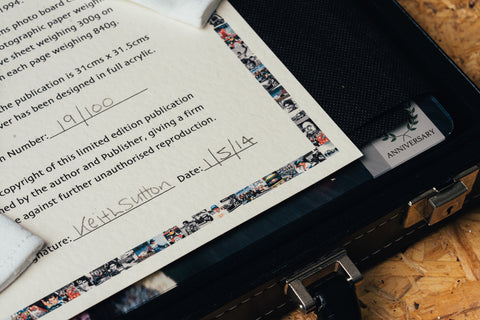 1994.
s photo board
otographic paper weigh
ve sheet weighing 300g on
h each page weighing 840g.
he publication is 31cms x 31.5cms
ver has been designed in full acrylic.
n Number: 19/100
copyright of this limited edition publication
ned by the author and Publisher, giving a firm
e against further unauthorised reproduction.
nature: Keith Sutton Date: 1/5/14
ANNIVERSARY